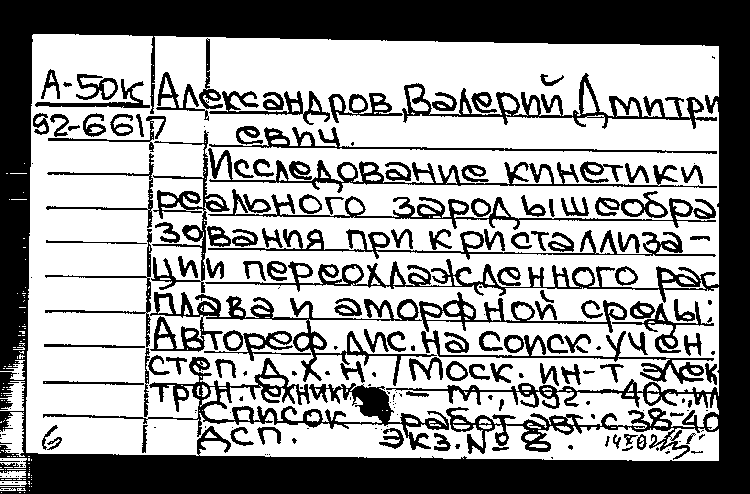 А-50к Александров, Валерий Дмитри
92-6617 евич.
Исследование кинетики
реального зародышеобра
зования при кристаллиза-
ции переохлажденного рас
плава и аморфной среды:
Автореф. дис. на соиск. учен.
степ. д.х.н. / Моск. ин-т элек
трон. техники – М., 1992. – 40с.: ил
Список работ авт.: с 38-40
6 ДСП. Экз. № 8.